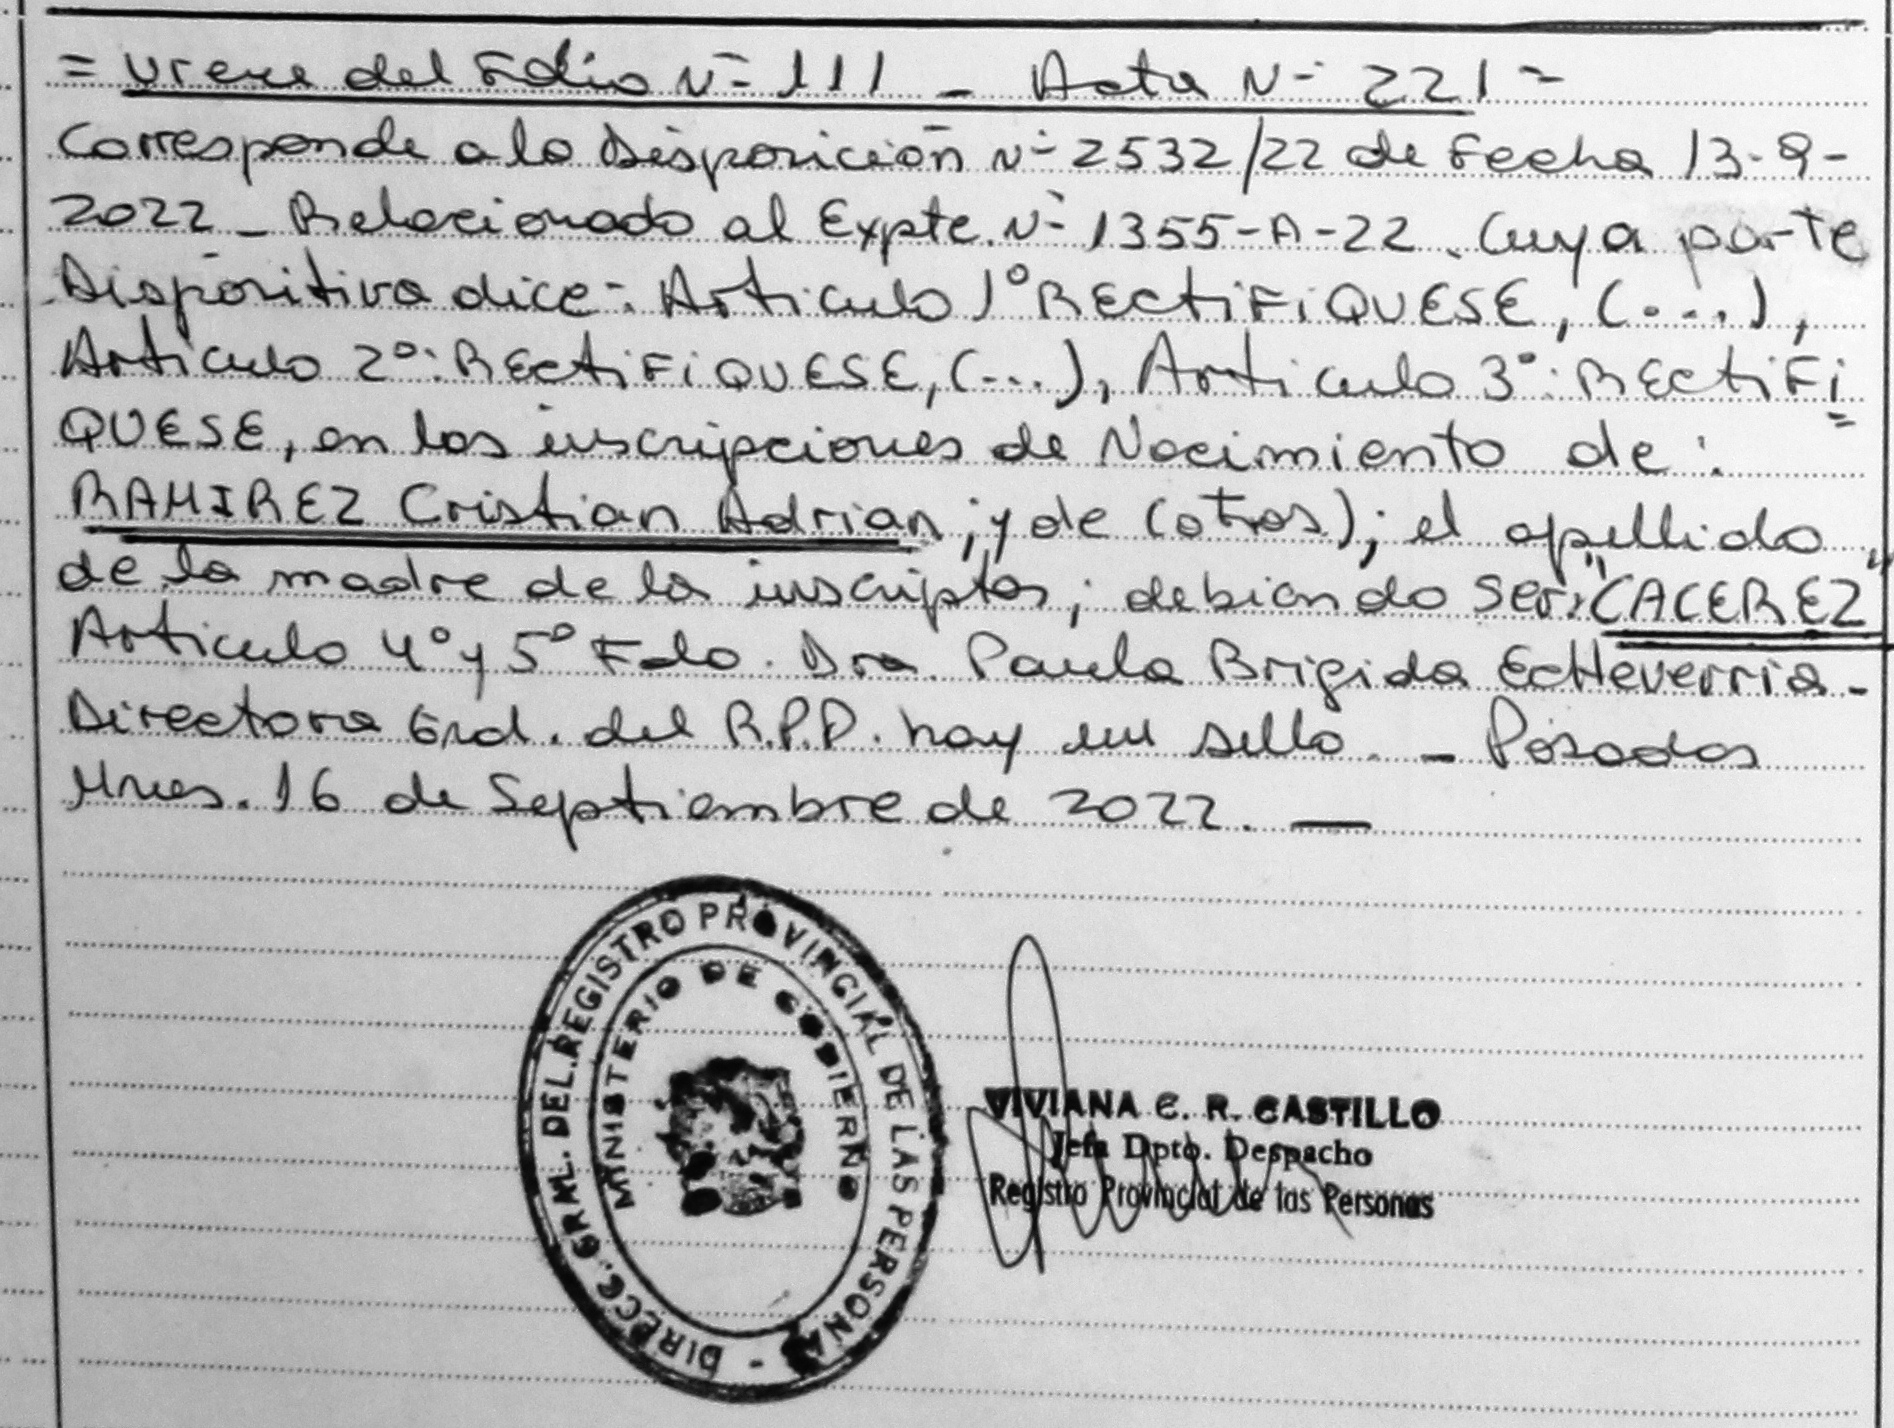 = Viene del Folio Nº 111 - Acta Nº 221 =
Corresponde a la Disposición Nº 2532/22 de Fecha 13-9-
2022 - Relacionado al Expte. Nº 1355-A-22. Cuya parte
Dispositiva dice: Articulo 1º RECTIFIQUESE, (...),
Articulo 2º: RECTIFIQUESE, (...), Articulo 3º: RECTIFI
QUESE, en las inscripciones de Nacimiento de:
RAMIREZ Cristian Adrian; y de (otros); el apellido
de la madre de la inscriptos; debiendo ser: "CACEREZ"
Articulo 4º y 5º Fdo. Dra. Paula Brigida EcHeverria-
Directora Gral. del R.P.P. hay un sello. - Posadas
Mnes. 16 de Septiembre de 2022. —
DIRECC. GRAL. DEL REGISTRO PROVINCIAL DE LAS PERSONAS -
MINISTERIO DE GOBIERNO
VIVIANA C. R. CASTILLO
Jefa Dpto. Despacho
Registro Provincial de las Personas